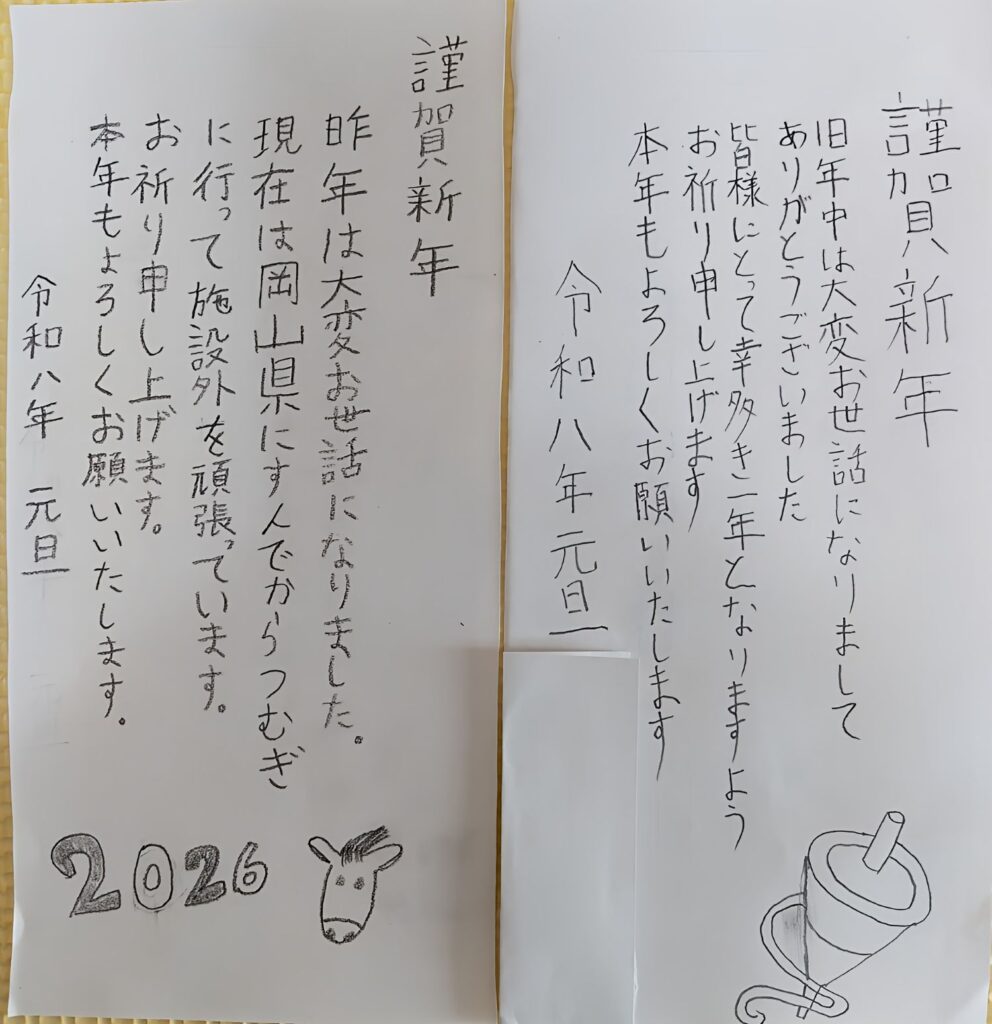 謹賀新年
旧年中は大変お世話になりまして
ありがとうございました
皆様にとって幸多き一年となりますよう
お祈り申し上げます
本年もよろしくお願いいたします
令和八年元旦
謹賀新年
昨年は大変お世話になりました。
現在は岡山県にすんでからつむぎ
に行って施設外を頑張っています。
お祈り申し上げます。
本年もよろしくお願いいたします。
令和八年 元旦
2026